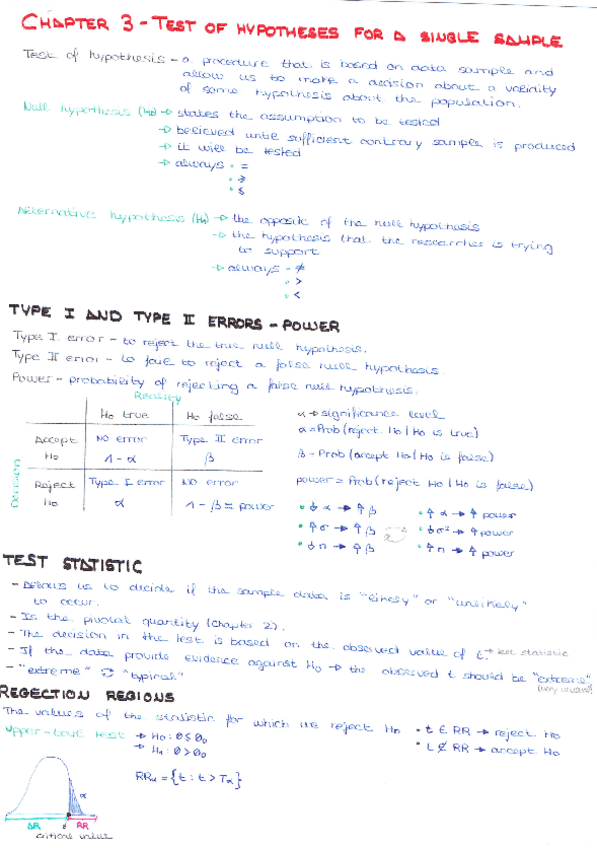 CHAPTER 3 - TEST OF HYPOTHESES FOR A SINGLE SAMPLE
Test of hypothesis - a procedure that is based on data sample and
allow us to make a decision about a validity
of some hypothesis about the population.
Null hypothesis (H0) → states the assumption to be tested
→ believed until sufficient contrary sample is produced
→ it will be tested
→ always • =
• ≥
• ≤
Alternative hypothesis (H1) → the opposite of the null hypothesis
→ the hypothesis that the researcher is trying
to support
→ always • ≠
• >
• <
TYPE I AND TYPE II ERRORS - POWER
Type I error - to reject the true null hypothesis.
Type II error - to fail to reject a false null hypothesis
Power - probability of rejecting a false null hypothesis.
Reality
H0 true H0 false
Accept H0 No error 1 - α Type II error β
Reject H0 Type I error α No error 1 - β = power
Decision
α → significance level
α = Prob(reject H0 | H0 is true)
β = Prob(accept H0 | H0 is false)
power = Prob(reject H0 | H0 is false)
• ↓ α → ↑ β • ↑ α → ↑ power
• ↑ σ → ↑ β • ↓ σ² → ↑ power
• ↓ n → ↑ β • ↑ n → ↑ power
TEST STATISTIC
- us to decide if the sample data is "likely" or "unlikely"
to occur.
- Is the pivotal quantity (Chapter 2).
- The decision in the test is based on the observed value of t. → test statistic
- If the data provide evidence against H0 → the observed t should be "extreme"
(very unusual)
- "extreme" "typical"
REGECTION REGIONS
The values of the statistic for which we reject H0 • t ∈ RR → reject H0
• t ∉ RR → accept H0
Upper-tail test → H0: θ ≤ θ0
→ H1: θ > θ0
RRα = {t : t > Tα}
α
AR RR
critical value